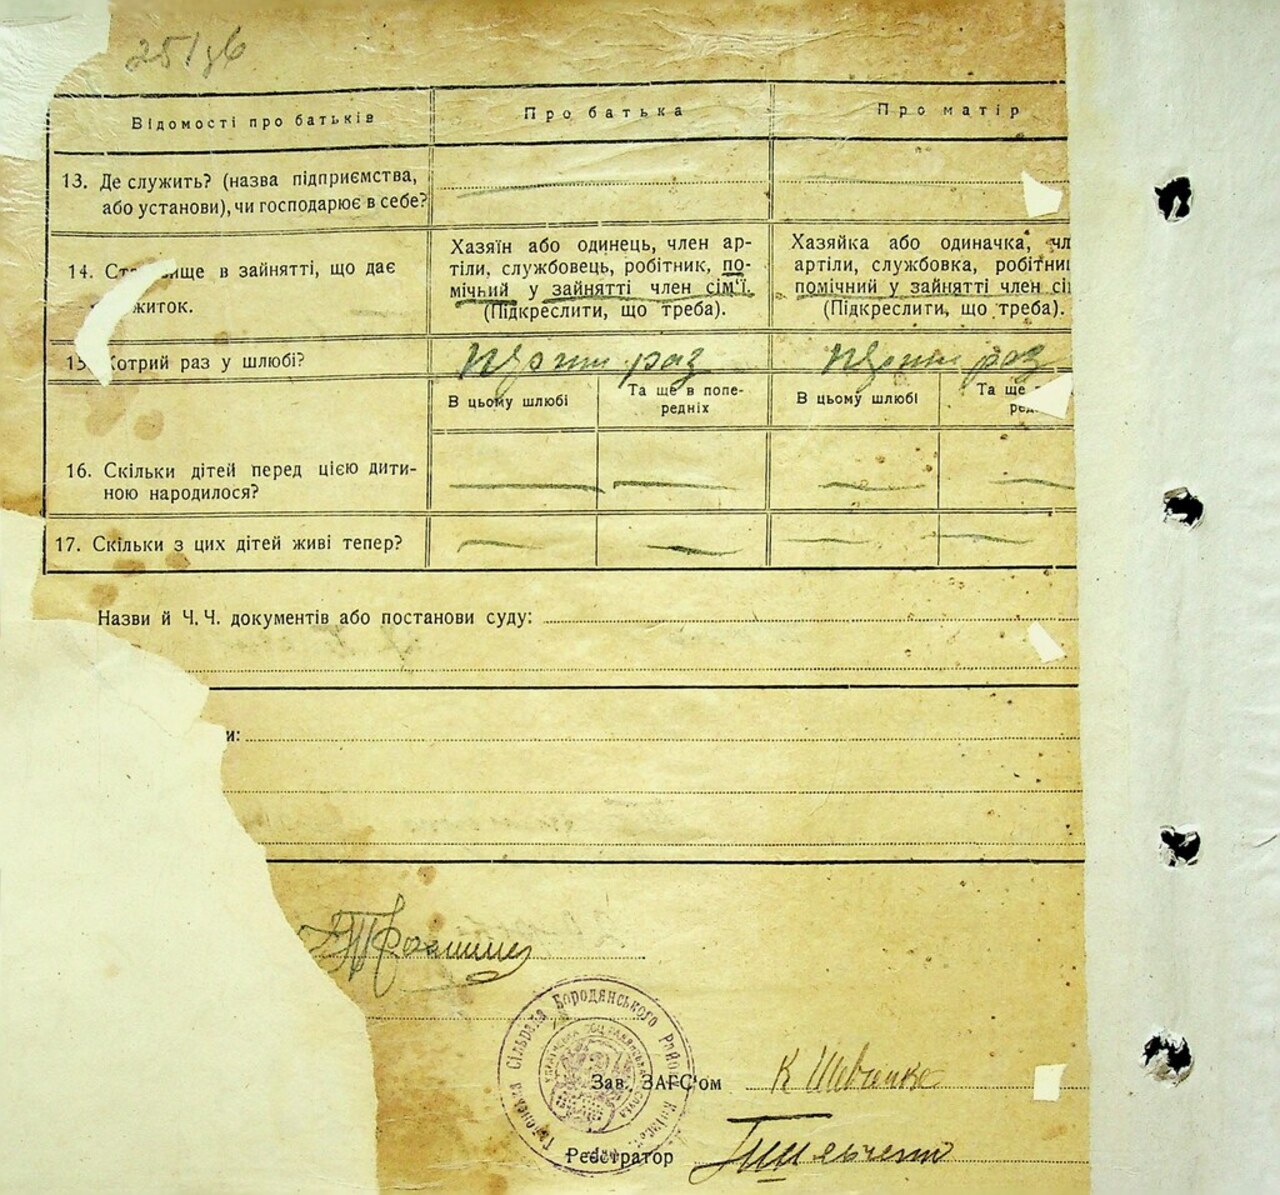 Відомості про батьків
Про батька
Про матір
13. Де служить? (назва підприємства,
або установи), чи господарює в себе?
14. Ст вище в зайнятті, що дає
житок.
Хазяїн або одинець, член ар-
тіли, службовець, робітник, по-
мічний у зайнятті член сім'ї.
(Підкреслити, що треба).
Хазяйка або одиначка, чл
артіли, службовка, робітни
помічний у зайнятті член сі
(Підкреслити, що треба).
15. Котрий раз у шлюбі?
раз
раз
В цьому шлюбі
Та ще в попе-
редніх
В цьому шлюбі
Та ще
ред
16. Скільки дітей перед цією дити-
ною народилося?
17. Скільки з цих дітей живі тепер?
Назви й Ч. Ч. документів або постанови суду:
и:
Сільрада Бородянського Району
Зав. ЗАГС'ом
К Шевченко
Реєстратор